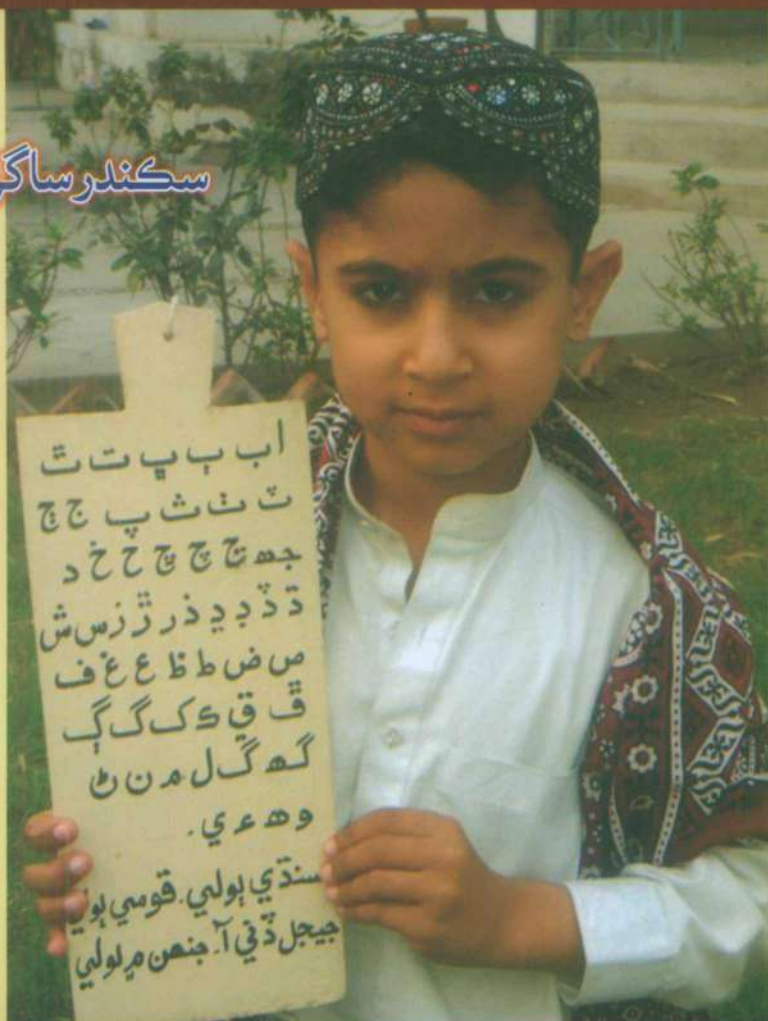 سڪندر ساگر
ا ب ٻ ڀ ت ٿ
ٽ ٺ ث پ ج ڄ
جھ ڃ چ ڇ ح خ د
ڌ ڏ ڊ ڍ ذ ر ڙ ز س ش
ص ض ط ظ ع غ ف
ڦ ق ڪ ک گ ڳ
گھ ڱ ل م ن ڻ
و ھ ء ي.
سنڌي ٻولي. قومي ٻولي
جيجل ڏني آ. جنھن ۾ لولي